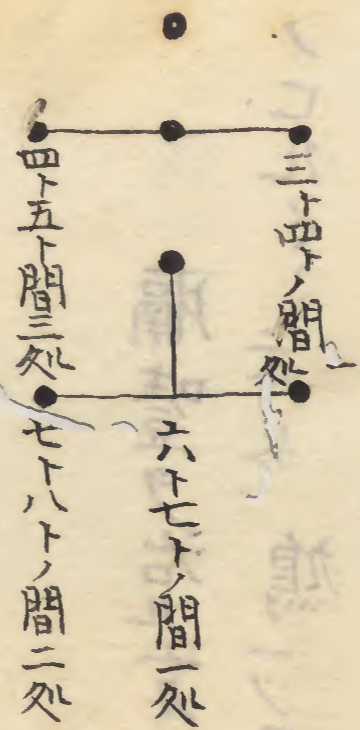 三ト四トノ間一処
四ト五ト間三処
六ト七トノ間一処
七ト八トノ間二処